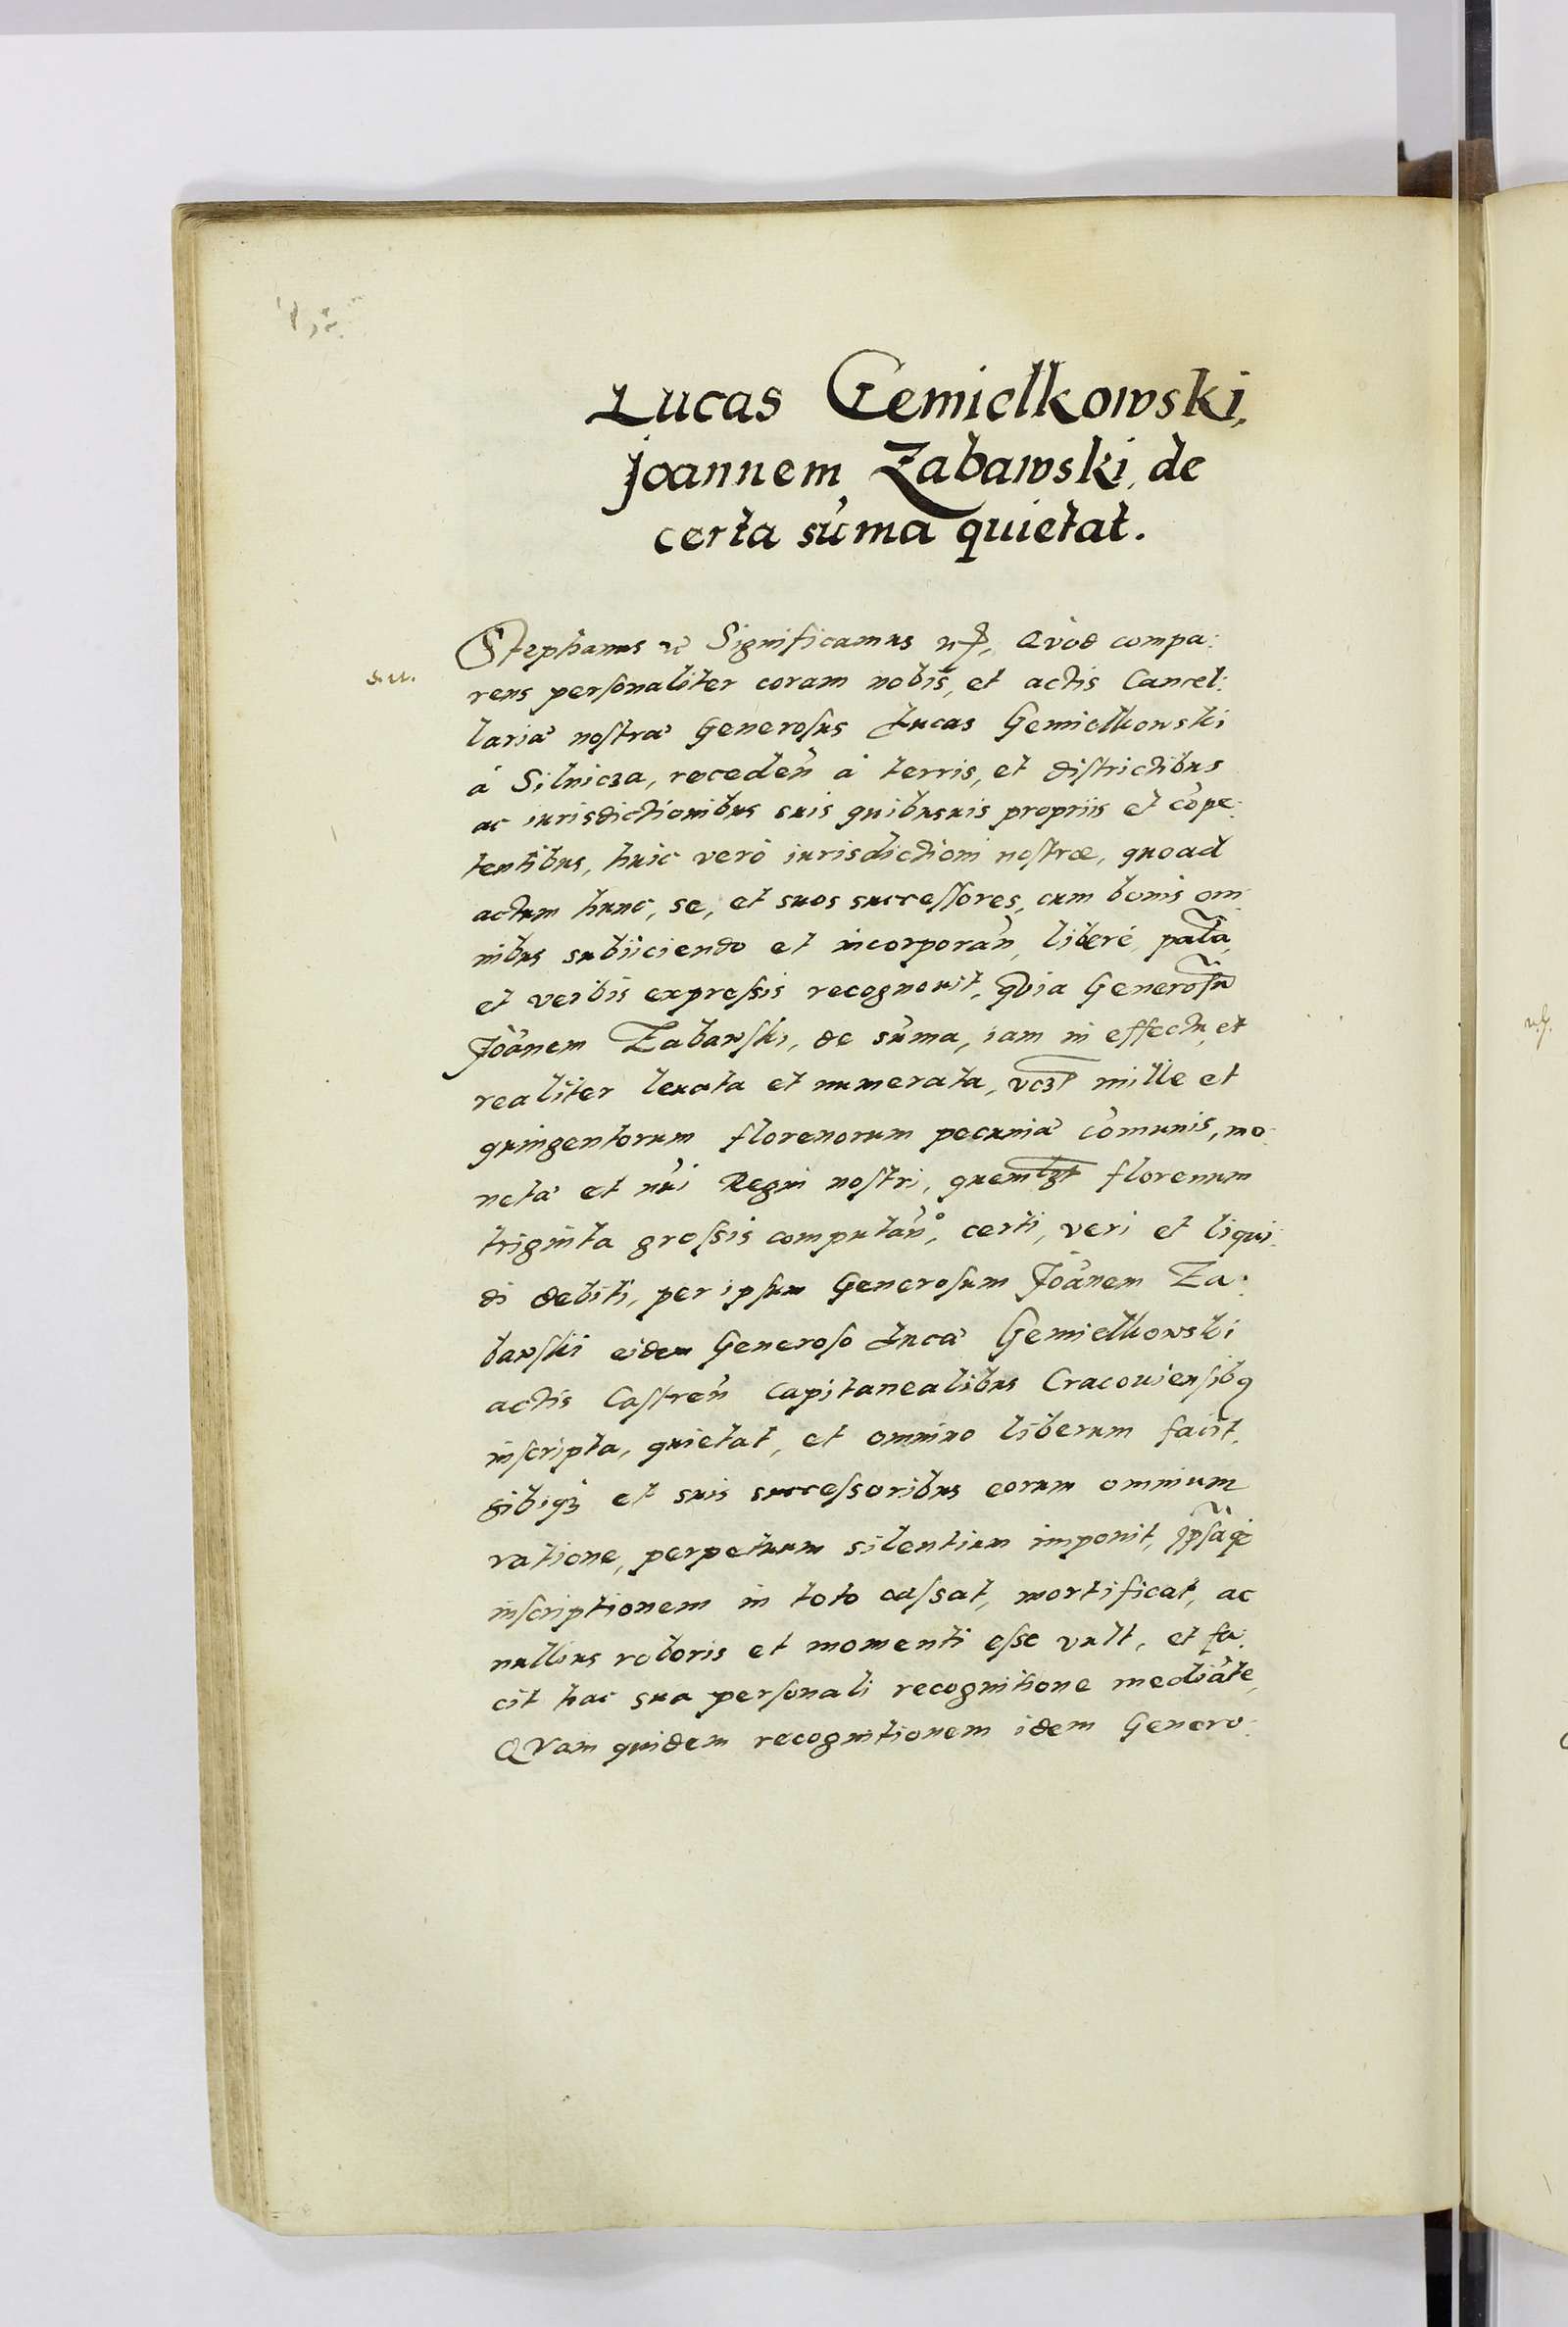 Lucas Gemielkowski,
Joannem Zabawski, de
certa sūma quietat.
Stephanus etc Significamus Quod compa:
rens personaliter coram nobis, et actis Cancel:
lariæ nostræ Generosus Lucas Gemielkowski
à Silnicza, receden̄ à terris, et districtibus
ac iurisdictionibus suis quibusuis propriis et cōpe:
tentibus, huic verò iurisdictioni nostræ, quoad
actum hunc, se, et suos successores, cum bonis om
nibus subiiciendo et incorporan̄, liberè, palā,
et verbis expressis recognouit, Quia Generosū
Joānem Zabawski, de sūma, iam in effectu, et
realiter leuata et numerata, vczt mille et
quingentorum florenorum pecuniæ cōmunis, mo:
netæ et nūi Regni nostri, quemlzt florenum
triginta grossis computan̄°, certi, veri et liqui:
di debiti, per ipsum Generosum Joānem Za:
bawski eidem Generoso Lucæ Gemielkowski
actis Castren̄ Capitanealibus Cracouiensibq
inscripta, quietat, et omnino liberum facit,
sibiqз et suis successoribus eorum omnium
ratione, perpetuum silentium imponit, ipsāqз
inscriptionem in toto cassat, mortificat, ac
nullius roboris et momenti esse vult, et fa:
cit hac sua personali recognitione mediāte,
QVam quidem recognitionem idem Genero: